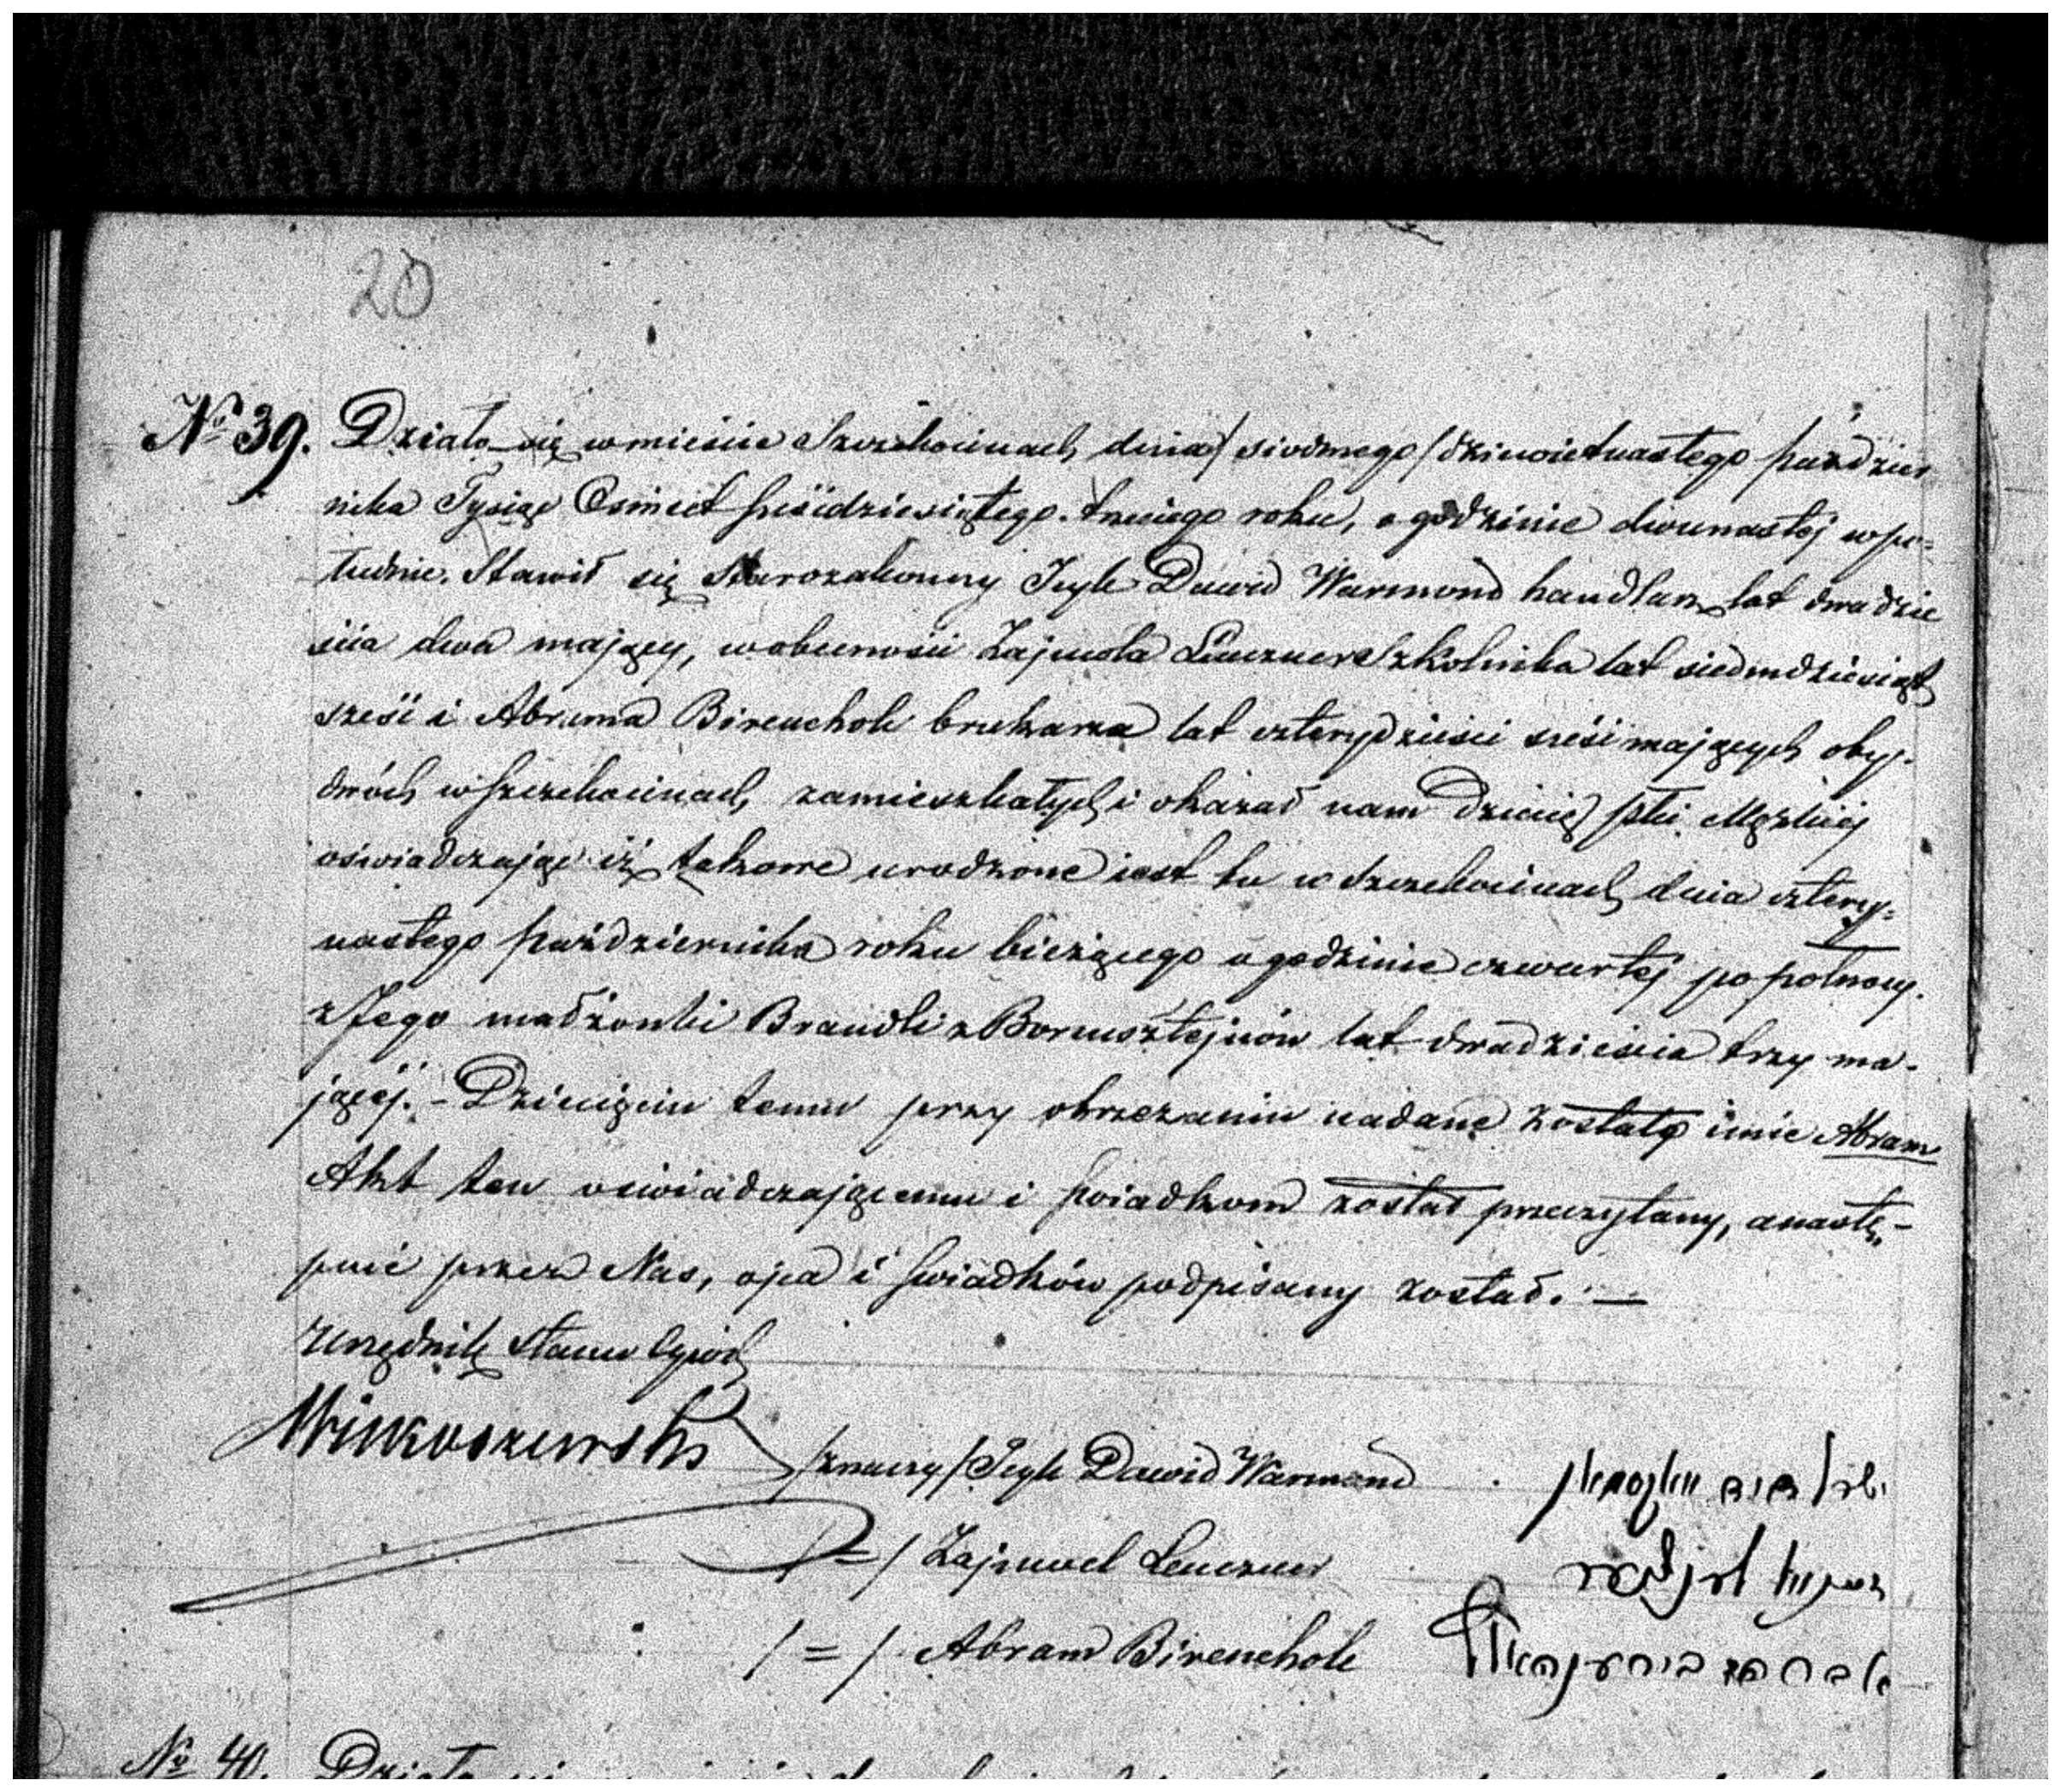 20
No 39. Działo się w mieście Szczekocinach dnia / siódmego / dziewietnastego paździer
nika Tysiąc Osmset sześćdziesiątego trzeciego roku, o godzinie dwunastej w po=
łudnie. Stawił się Starozakonny Icyk Dawid Warmond handlarz lat dwadzie
ścia dwa mający, w obecności Zajmola Lenczner Szkolnika lat siedmdziesiąt
sześć i Abrama Birencholc brukarza lat czterydzieści sześć mających oby-
dwóch w Szczekocinach zamieszkałych i okazał nam dziecię płci Męzkiej
oświadczając iż takowe urodzone iest tu w Szczekocinach dnia cztery=
nastego października roku bieżącego o godzinie czwartej po połnocy.
z Jego małżonki Brandli z Bornsztejnów lat dwadzieścia trzy ma-
jącej. - Dziecięciu temu przy obrzezaniu nadane zostało imie Abram
Akt ten oświadczającemu i świadkom został przeczytany, a nastę-
pnie przez Nas, ojca i świadków podpisany został. —
Urzędnik Stanu Cywil
/znaczy/ Icyk Dawid Warmond
/=/ Zajmwel Lenczner
/=/ Abram Birencholc
No 40. Działo się